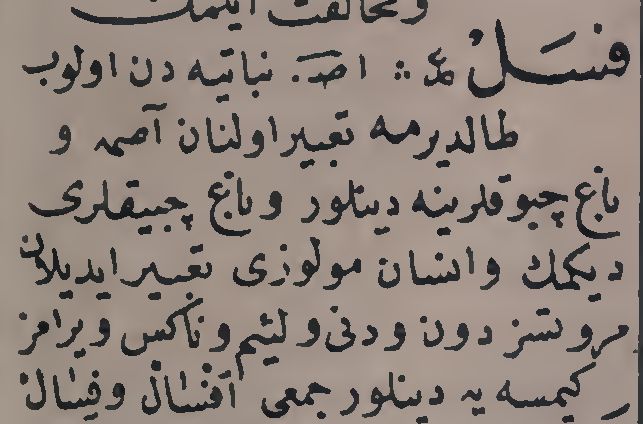 ومخالفت ایتمك
فسل ع : اصـ. نباتیه دن اولوب
طالدیرمه تعبیر اولنان آصمه و
باغ چبوقلرینه دینلور و باغ چبیقلری
دیكمك و انسان مولوزی تعبیر ایدیلان
مروتسز دون و دنی و لئیم و ناكس و یرامز
كیمسه یه دینلور جمعی افسال و فسال